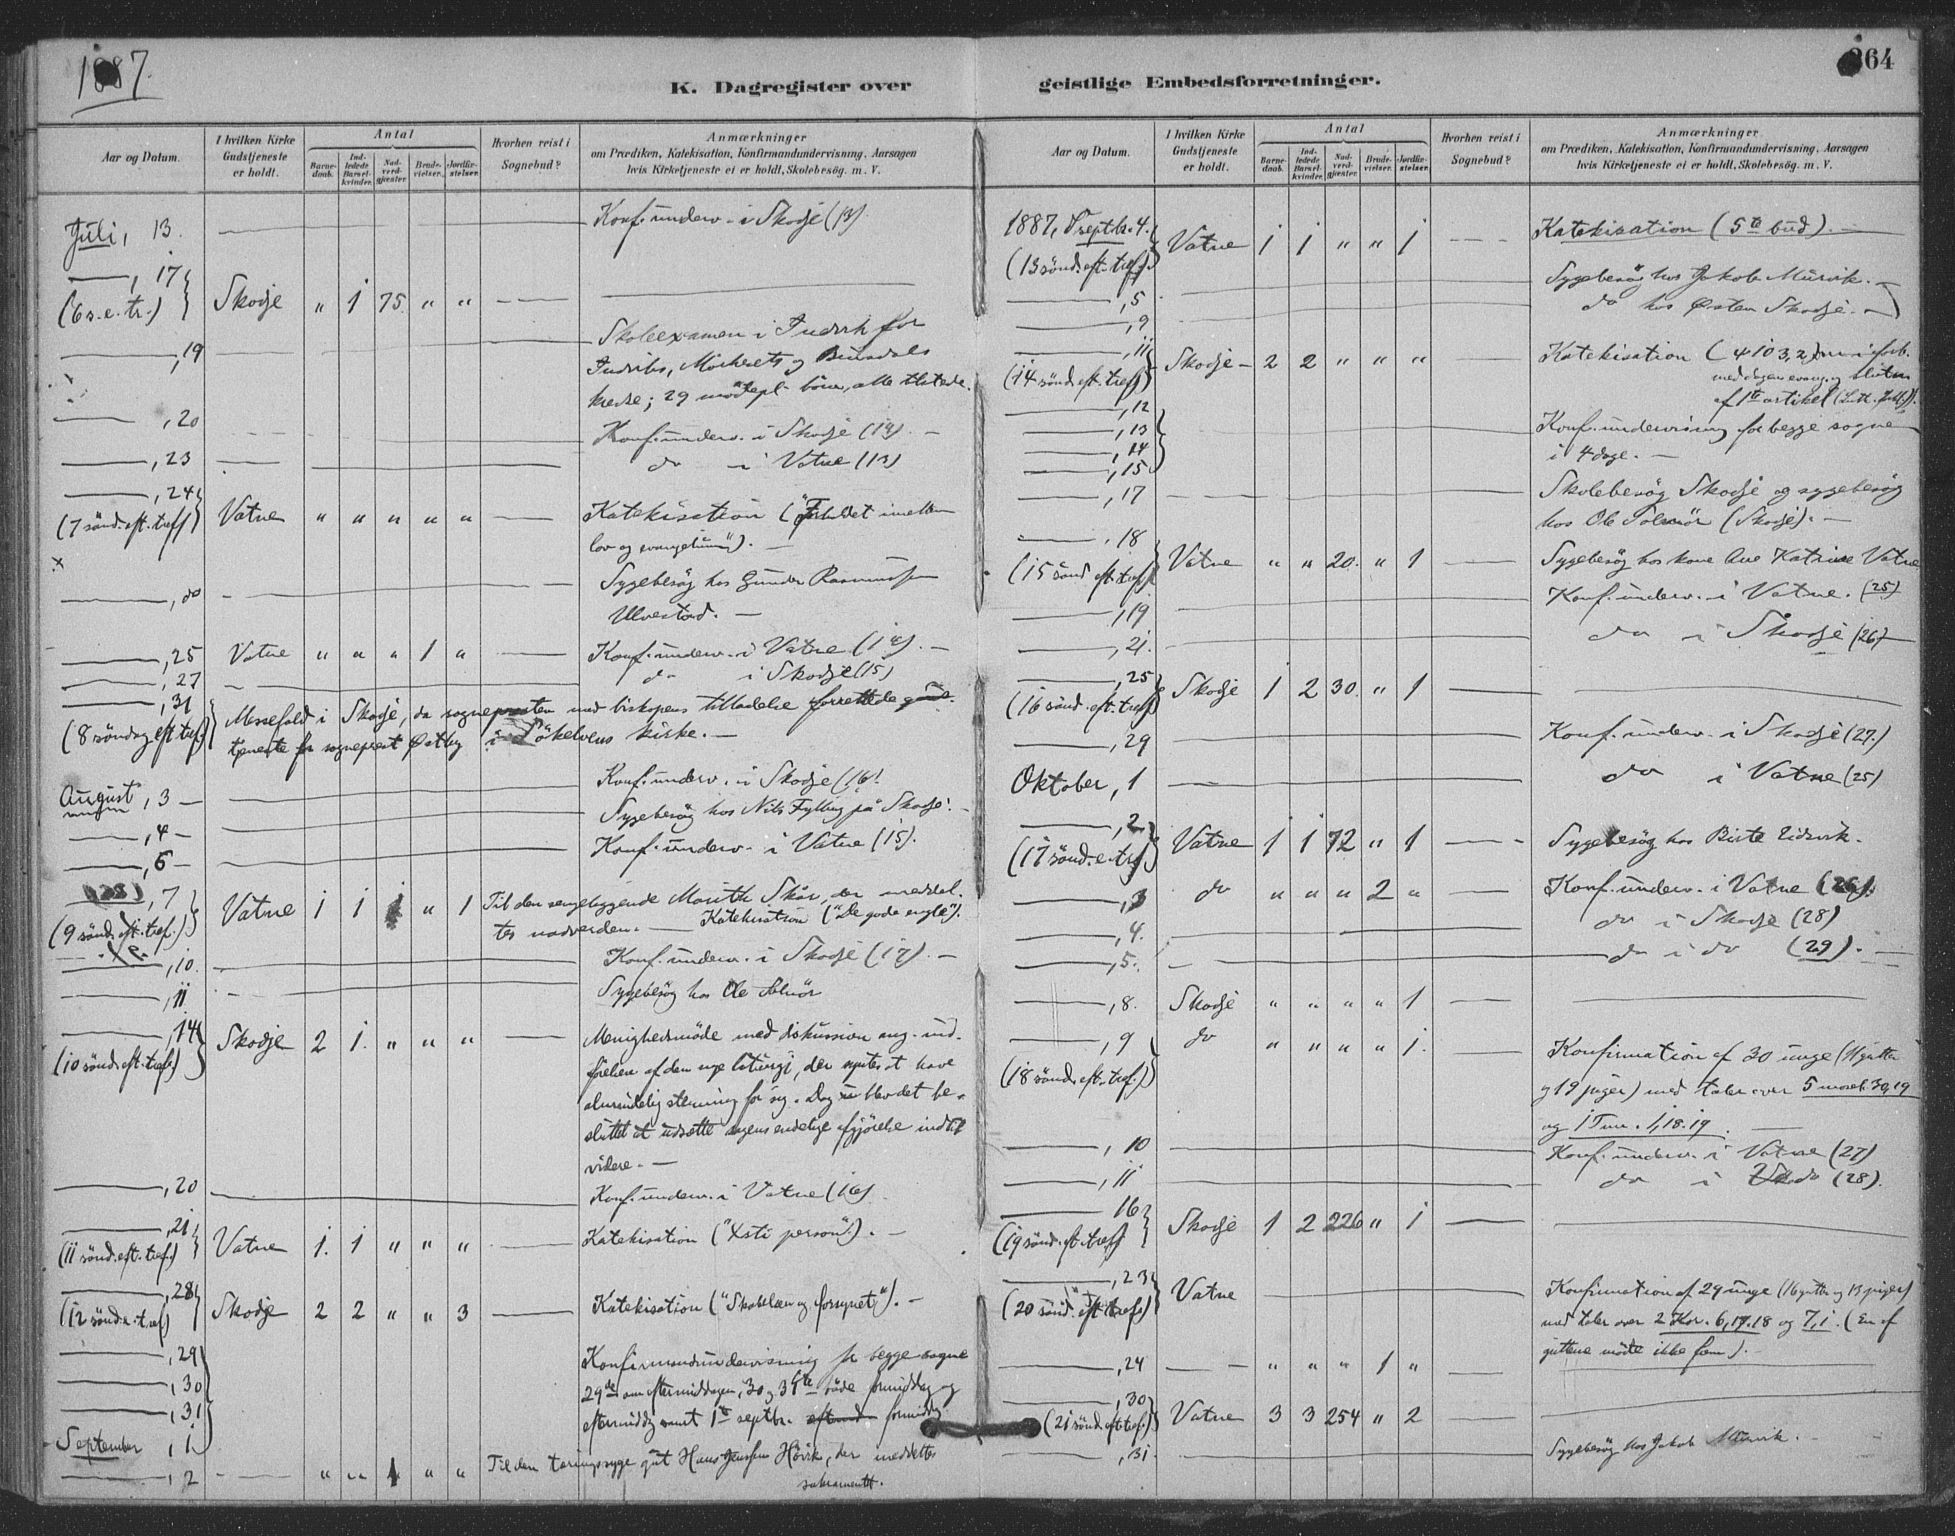 1887.
364
K. Dagregister over geistlige Embedsforretninger.
Aar og Datum.
I hvilken Kirke Gudstjeneste er holdt.
Antal
Barne-daab.
Ind-ledede Barsel-kvinder.
Nad-verd-gjæster.
Brude-vielser.
Jordfæ-stelser.
Hvorhen reist i Sognebud?
Anmærkninger
om Prædiken, Katekisation, Konfirmandundervisning, Aarsagen
hvis Kirketjeneste ei er holdt, Skolebesög. m. V.
Juli, 13. Konf. underv. i Skodje (13).
, 17
(6 s. e. tr.) Skodje " 1 75. " "
, 19 Skoleexamen i for
og
kredse; 29 börn, alle
, 20 Konf. underv. i Skodje (14). —
, 23 do i Vatne (13)
, 24
(7 sönd. eft. tref.) Vatne " " " " " Katekisation ("Forholdet imellem
lov og evangelium"). —
, do Sygebesög hos Gunder Rasmussen
Ulvestad. —
, 25 Vatne " " " 1 " Konf. underv. i Vatne (14). —
, 27 do i Skodje (15)
, 31 Messefald i Skodje, da sognepresten med biskopens tilladelse forrettede guds-
(8 söndag eft. tref.) tjeneste for sogneprest Østby i Sökelvens kirke. —
August, 3 — Konf. underv. i Skodje (16).
, 4 — Sygebesög hos Nils Fylling på Skodje. —
, 6 Konf. underv. i Vatne (15).
, 7 Vatne 1 1 1 " 1 Til den sengeliggende Marith Skår, der meddel-
(9 sönd. eft. tref.) tes nadverden. — Katekisation ("De gode engle").
, 10. Konf. underv. i Skodje (17). —
, 11 Sygebesög hos Ole Solnör
, 14
(10 sönd. eft. tref.) Skodje 2 1. " " " Menighedsmöde med diskussion ang. ind-
förelsen af den nye liturgi, der syntes at have
almindelig stemning for sig. Dog blev det be-
sluttet at udsætte sagens endelige afgjörelse indtil
videre. —
, 20 Konf. underv. i Vatne (16)
, 21
(11 sönd. eft. tref.) Vatne 1. 1 " " " Katekisation ("Xsti person"). —
, 28
(12 sönd. e. tref.) Skodje 2 2 " " 3 Katekisation ("Skabelsen og forsynet"). —
, 29 Konfirmandundervisning for begge sogne
, 30 29de om eftermiddagen, 30 og 31te både formiddag og
, 31 eftermiddag samt 1te septbr. formiddag
September, 1
, 2 " " 1 " " Til den tæringssyge gut Hans Jenssen Hövik, der meddeltes
sakramentet.
Aar og Datum.
I hvilken Kirke Gudstjeneste er holdt.
Antal
Barne-daab.
Ind-ledede Barsel-kvinder.
Nad-verd-gjæster.
Brude-vielser.
Jordfæ-stelser.
Hvorhen reist i Sognebud?
Anmærkninger
om Prædiken, Katekisation, Konfirmandundervisning, Aarsagen
hvis Kirketjeneste ei er holdt, Skolebesög. m. V.
1887, Septbr. 4.
(13 sönd. eft. tref.) Vatne 1 1 " " 1 Katekisation (5te bud). —
, 5 Sygebesög hos Jakob Mürvik. —
, 9 do hos Østen Skodje. —
, 11
(14 sönd. eft. tref.) Skodje — 2 2 " " " Katekisation i forb.
med dagens evang. og slutn.
af 1te artikel
, 12
, 13 Konf. undervisning for begge sogne
, 14 i 4 dage. —
, 15
, 17 Skolebesög Skodje og sygebesög
hos Ole Solnör (Skodje). —
, 18
(15 sönd. eft. tref.) Vatne " " 20. " 1 Sygebesög hos kone Ane Katrine Vatne
, 19 Konf. underv. i Vatne. (25)
, 21. do i Skodje (26)
, 25
(16 sönd. eft. tref.) Skodje 1 2 30. " 1
, 29 Konf. underv. i Skodje (27.)
Oktober, 1 do i Vatne (25)
, 2
(17 sönd. e. tref.) Vatne 1 1 72 " 1 Sygebesög hos Birte Eidsvik.
, 3 do " " " 2 " Konf. underv. i Vatne (26).
, 4. do i Skodje (28)
, 5. do i do (29). —
, 8. Skodje " " " " 1
, 9 do " " " " 1.
(18 sönd. eft. tref.) Konfirmation af 30 unge (11 gutter
og 19 piger) med taler over 5 moseb. 30,19
og 1 Tim. 1,18.19.
, 10 Konf. underv. i Vatne (27)
, 11 do i do (28).
16
(19 sönd. eft. tref.) Skodje 1 2 226 " 1
, 23
(20 sönd. eft. tref.) Vatne Konfirmation af 29 unge (16 gutter og 13 piger)
med taler over 2 Kor. 6,17.18 og 7,1. (En af
gutterne mödte ikke frem). —
, 24 — " " " 1 "
, 30
(21 sönd. eft. tref.) Vatne 3 3 254 " 2
, 31. Sygebesög hos Jakob Mürvik.